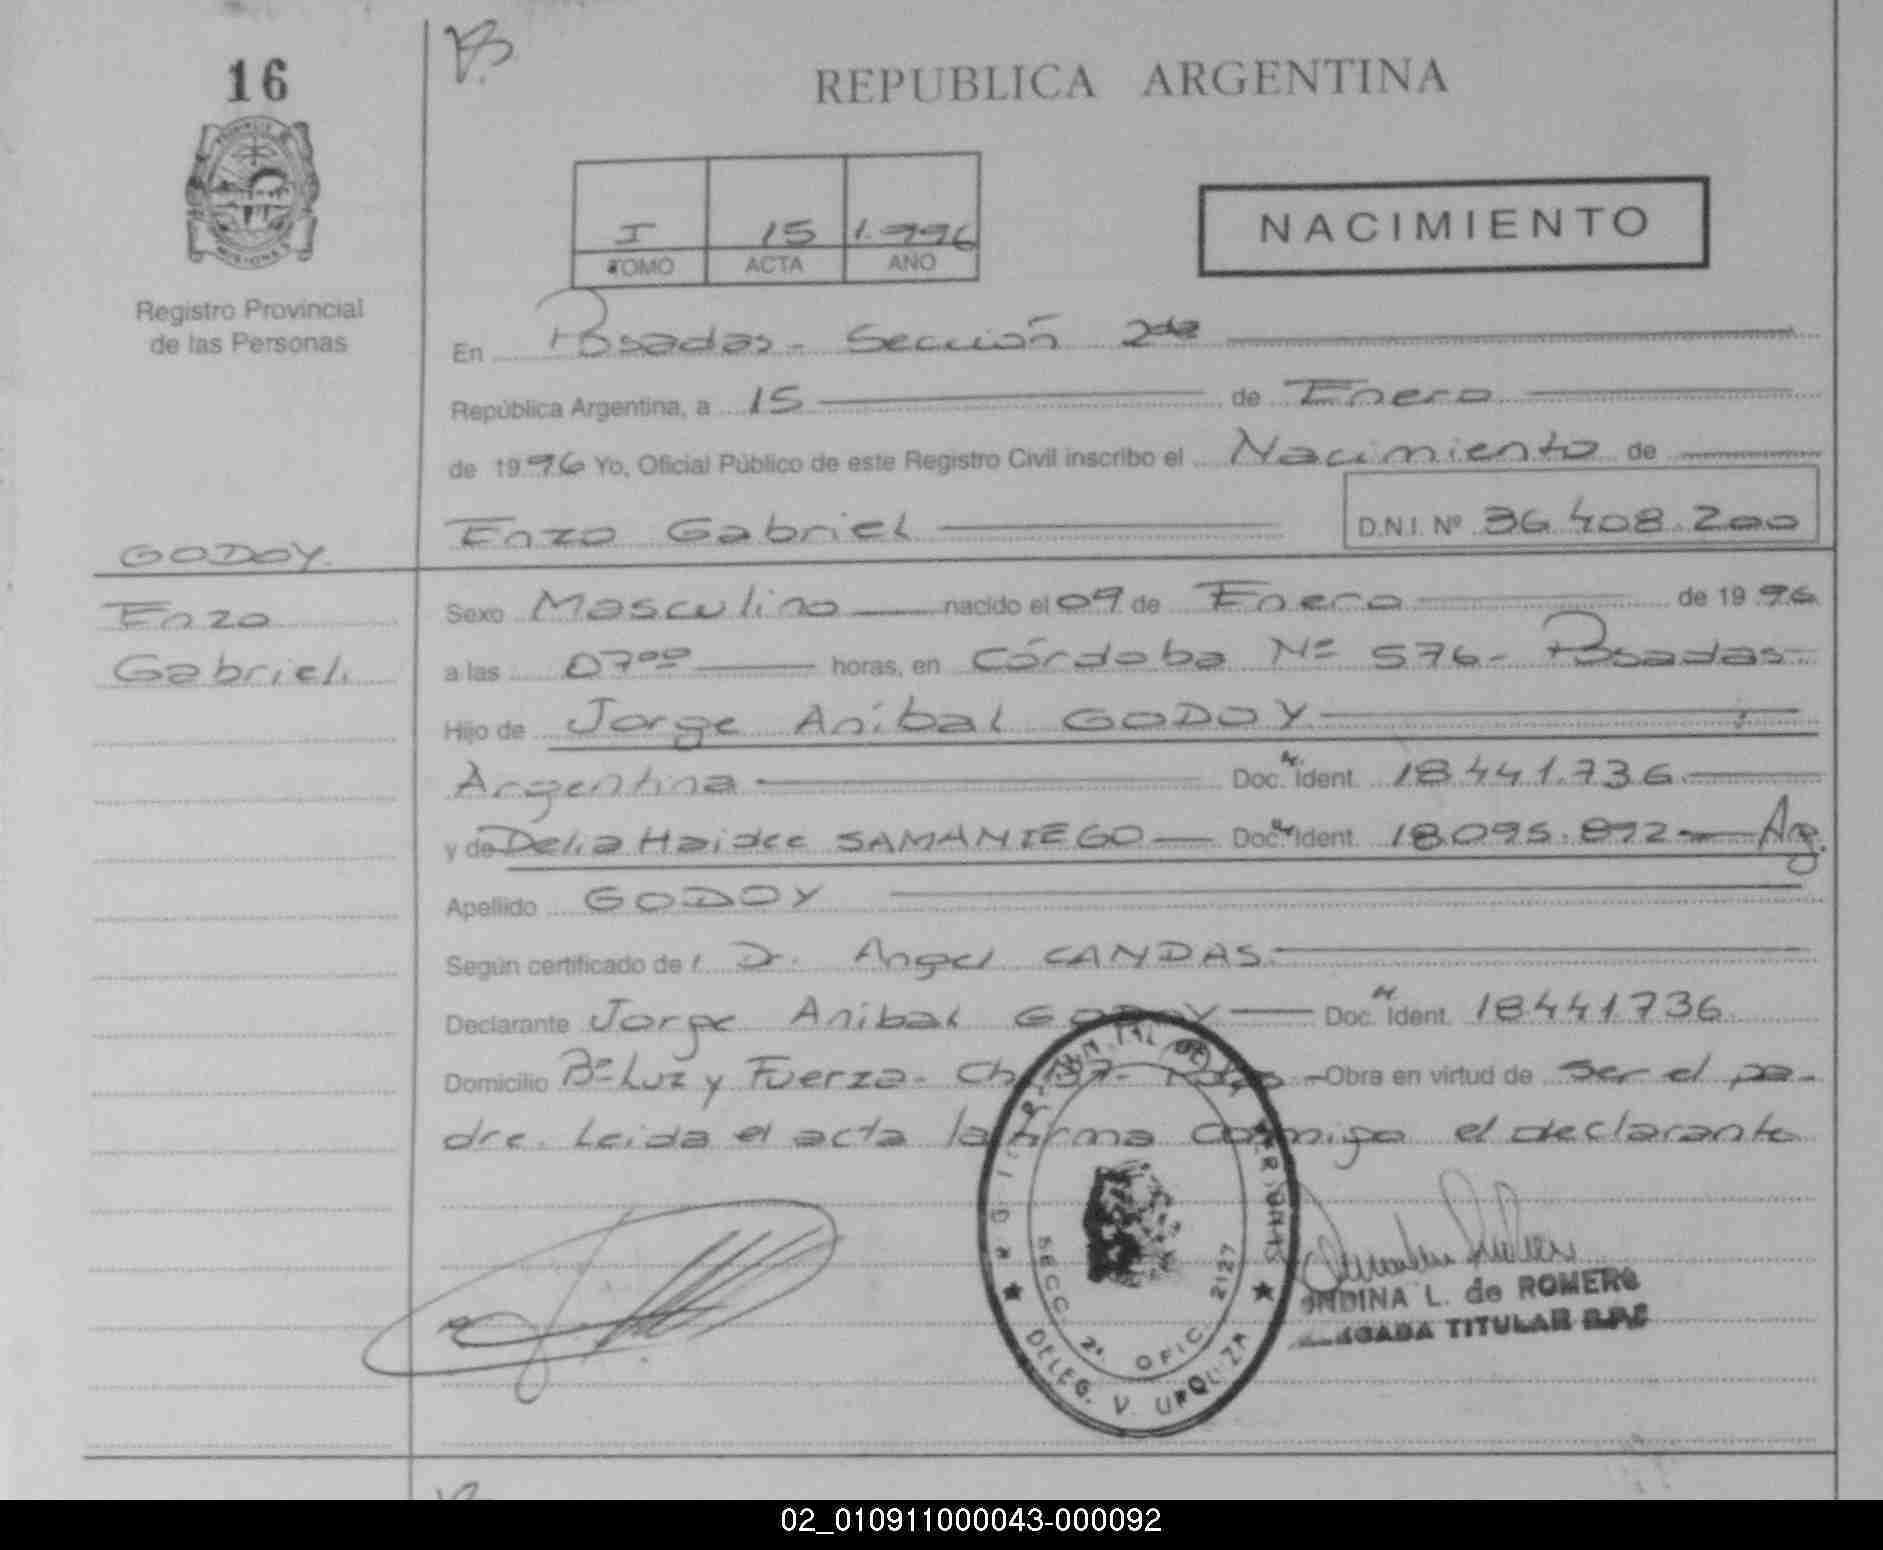 16
REPUBLICA ARGENTINA
I 15 1.996
TOMO ACTA AÑO
NACIMIENTO
Registro Provincial
de las Personas
En Posadas - Sección 2da
República Argentina, a 15 de Enero
de 1996 Yo, Oficial Público de este Registro Civil inscribo el Nacimiento de
Enzo Gabriel D.N.I. Nº 36.408.200
GODOY
Enzo
Gabriel
Sexo Masculino nacido el 09 de Enero de 1996
a las 07°° horas, en Córdoba Nº 576 - Posadas -
Hijo de Jorge Aníbal GODOY
Argentina Doc. Ident. 18.441.736
y de Delia Haidee SAMANIEGO Doc. Ident. 18.095.872 Arg.
Apellido GODOY
Según certificado de Dr. Angel CANDAS
Declarante Jorge Aníbal GODOY Doc. Ident. 18441736
Domicilio Bº Luz y Fuerza - Ch. Obra en virtud de ser el pa-
dre. Leida el acta la firma conmigo el declarante
SECC. 2ª OFIC. 2127
DELEG. V. URQUIZA
ONDINA L. de ROMERO
TITULAR
02_010911000043-000092